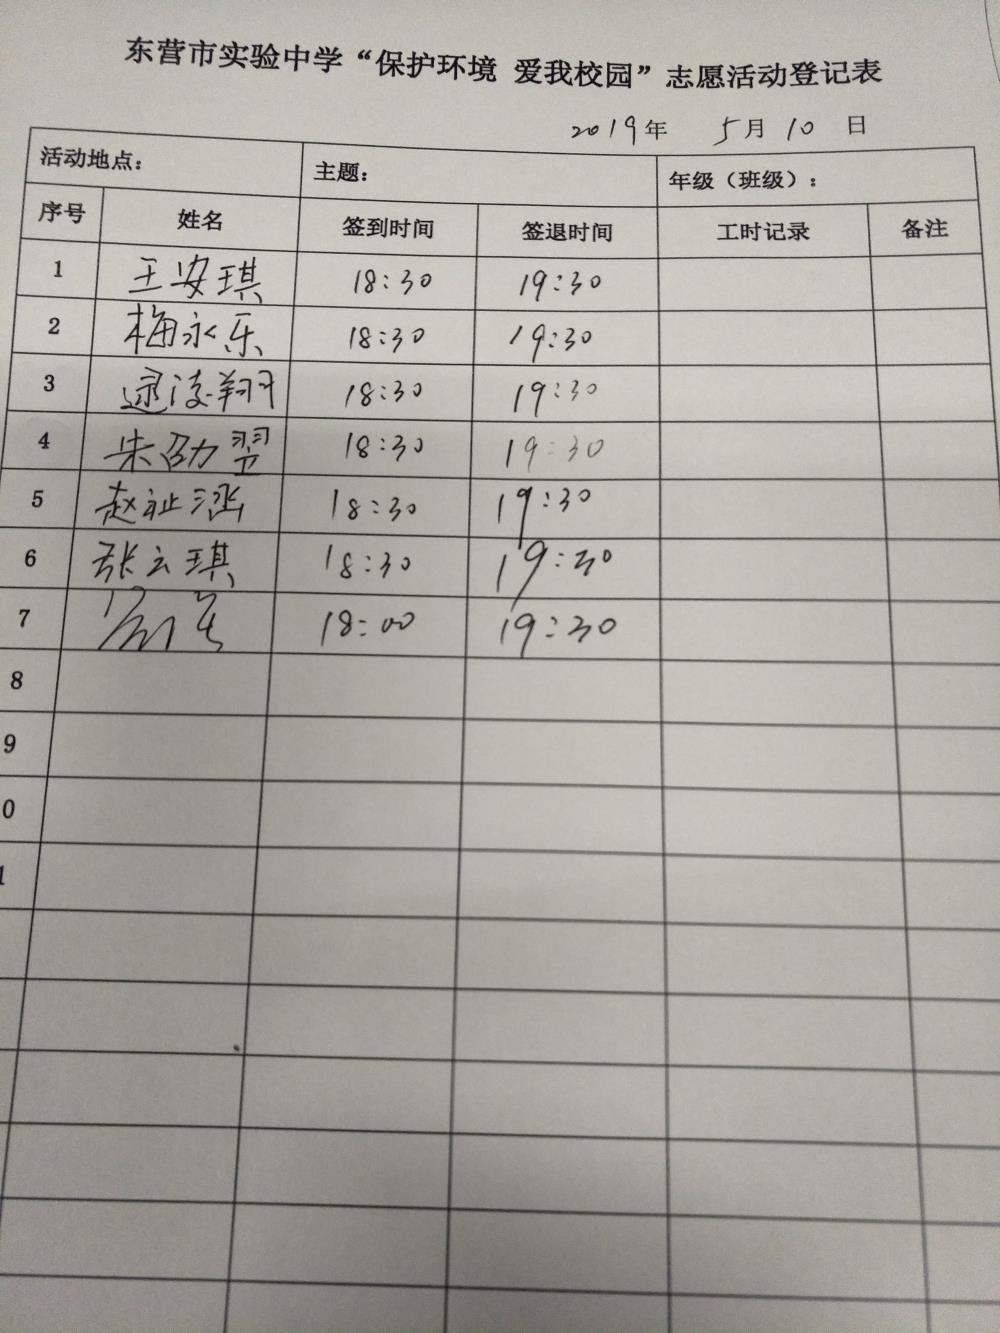 东营市实验中学“保护环境 爱我校园”志愿活动登记表
2019年 5月10日
活动地点： 主题： 年级（班级）：
序号 姓名 签到时间 签退时间 工时记录 备注
1 王安琪 18:30 19:30
2 梅永乐 18:30 19:30
3 逯凌翔 18:30 19:30
4 朱劭翌 18:30 19:30
5 赵祉涵 18:30 19:30
6 张云琪 18:30 19:30
7 18:00 19:30
8
9
0
1